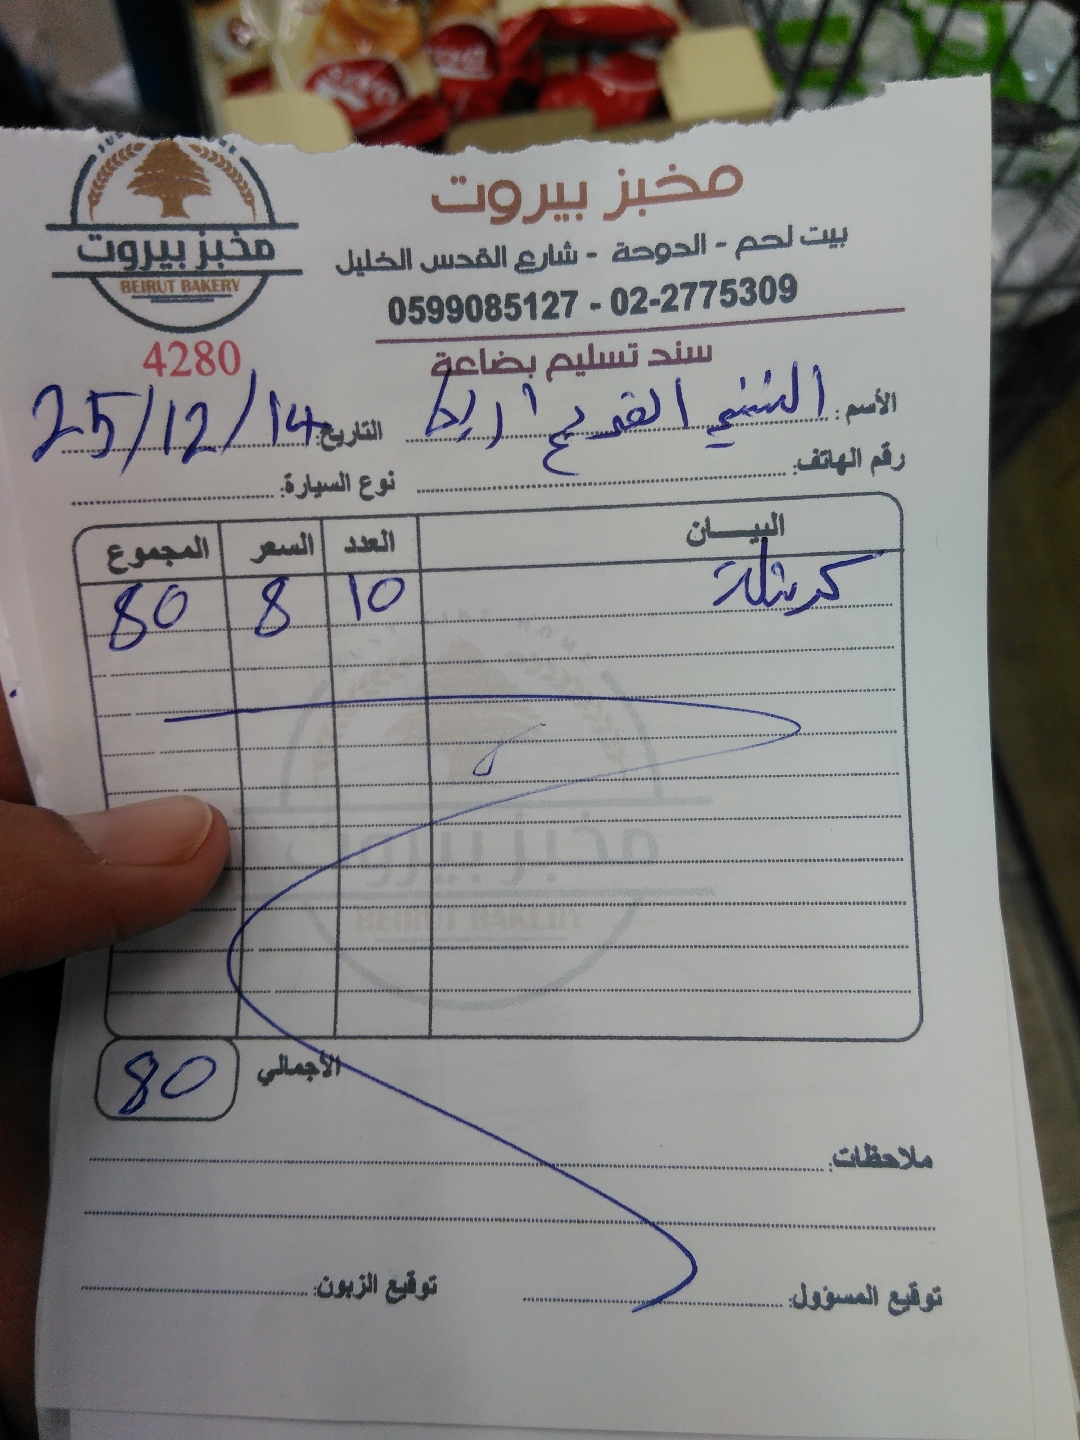 مخبز بيروت
BEIRUT BAKERY
مخبز بيروت
بيت لحم - الدوحة - شارع القدس الخليل
0599085127 - 02-2775309
4280
سند تسليم بضاعة
الأسم:
التاريخ: 25/12/14
رقم الهاتف:
نوع السيارة:
البيـــان العدد السعر المجموع
كرشلة 10 8 80
مخبز بيروت
BEIRUT BAKERY
الأجمالي 80
ملاحظات:
توقيع المسؤول: توقيع الزبون: